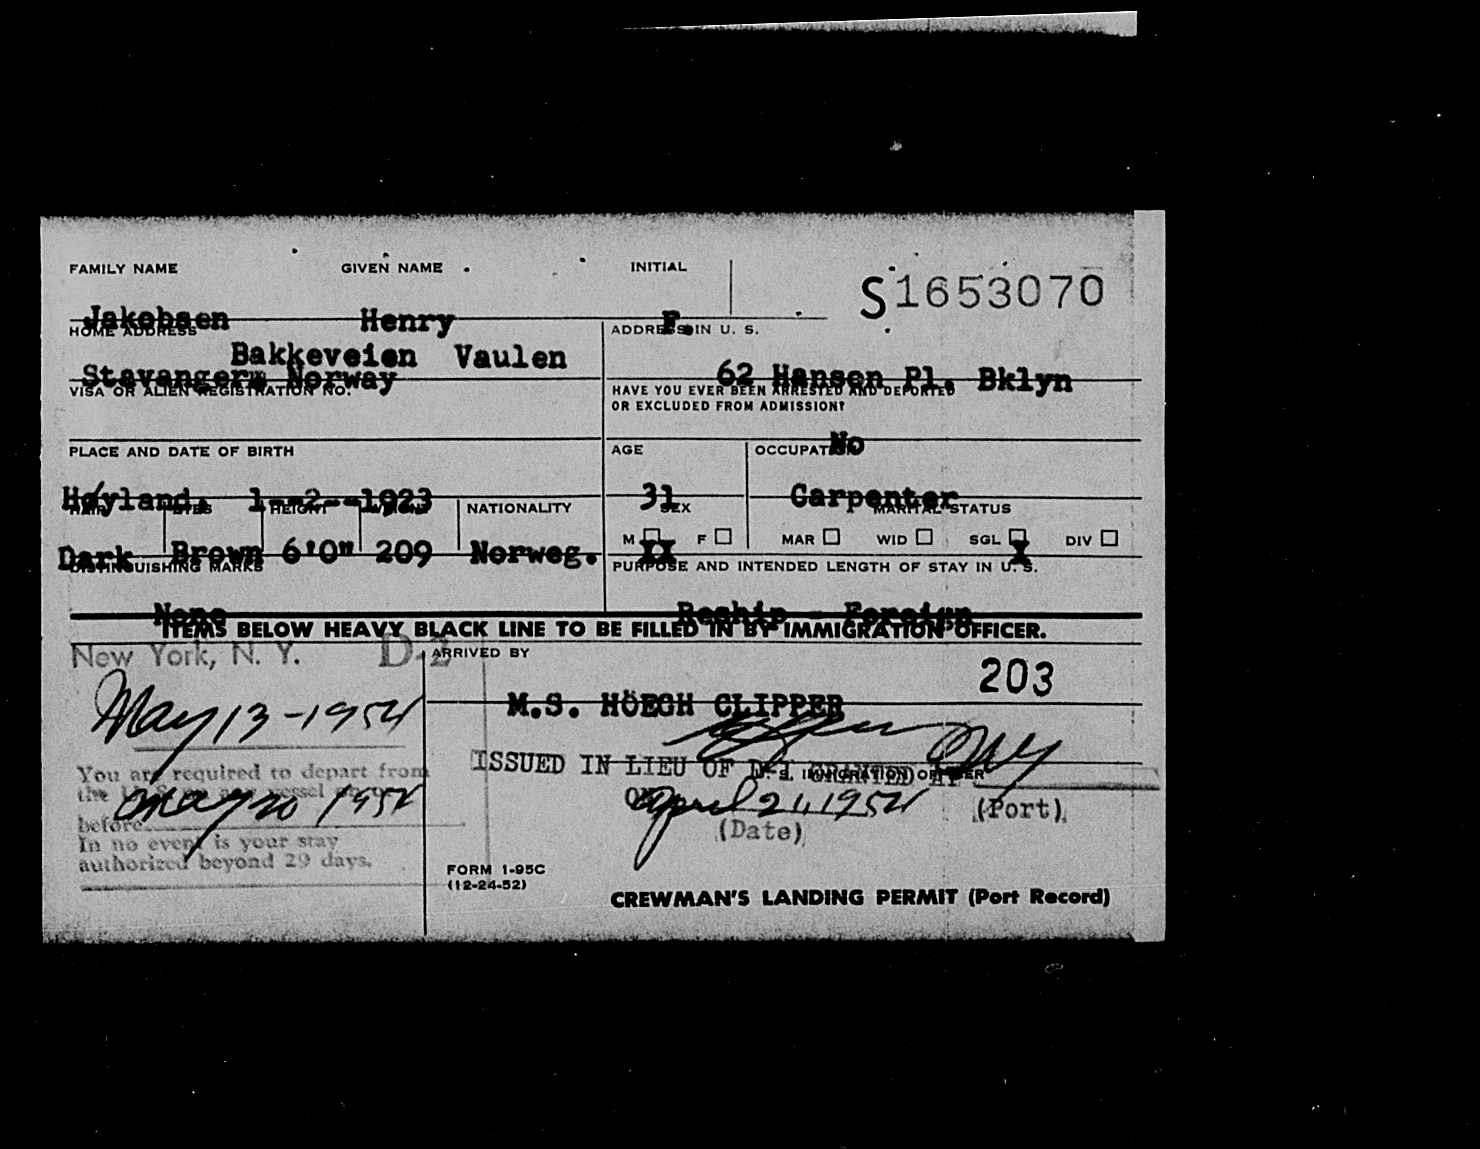 FAMILY NAME GIVEN NAME INITIAL
S1653070
Jakobsen Henry F.
HOME ADDRESS ADDRESS IN U. S.
Bakkeveien Vaulen
Stavanger, Norway 62 Hansen Pl. Bklyn
VISA OR ALIEN REGISTRATION NO. HAVE YOU EVER BEEN ARRESTED AND DEPORTED
OR EXCLUDED FROM ADMISSION?
No
PLACE AND DATE OF BIRTH AGE OCCUPATION
Høyland. 1--2--1923 31 Carpenter
HAIR EYES HEIGHT WEIGHT NATIONALITY SEX MARITAL STATUS
M F MAR WID SGL DIV
Dark Brown 6'0" 209 Norweg. XX X
DISTINGUISHING MARKS PURPOSE AND INTENDED LENGTH OF STAY IN U. S.
None Reship - Foreign
ITEMS BELOW HEAVY BLACK LINE TO BE FILLED IN BY IMMIGRATION OFFICER.
New York, N. Y. D-2 ARRIVED BY
203
M.S. HÖEGH CLIPPER
May 13-1954
ISSUED IN LIEU OF D-1 GRANTED AT
U. S. IMMIGRATION OFFICER
NY
You are required to depart from
the U. S. on any vessel on or
May 20 1954
before
ON April 21, 1954 (Port)
(Date)
In no event is your stay
authorized beyond 29 days.
FORM I-95C
(12-24-52)
CREWMAN'S LANDING PERMIT (Port Record)